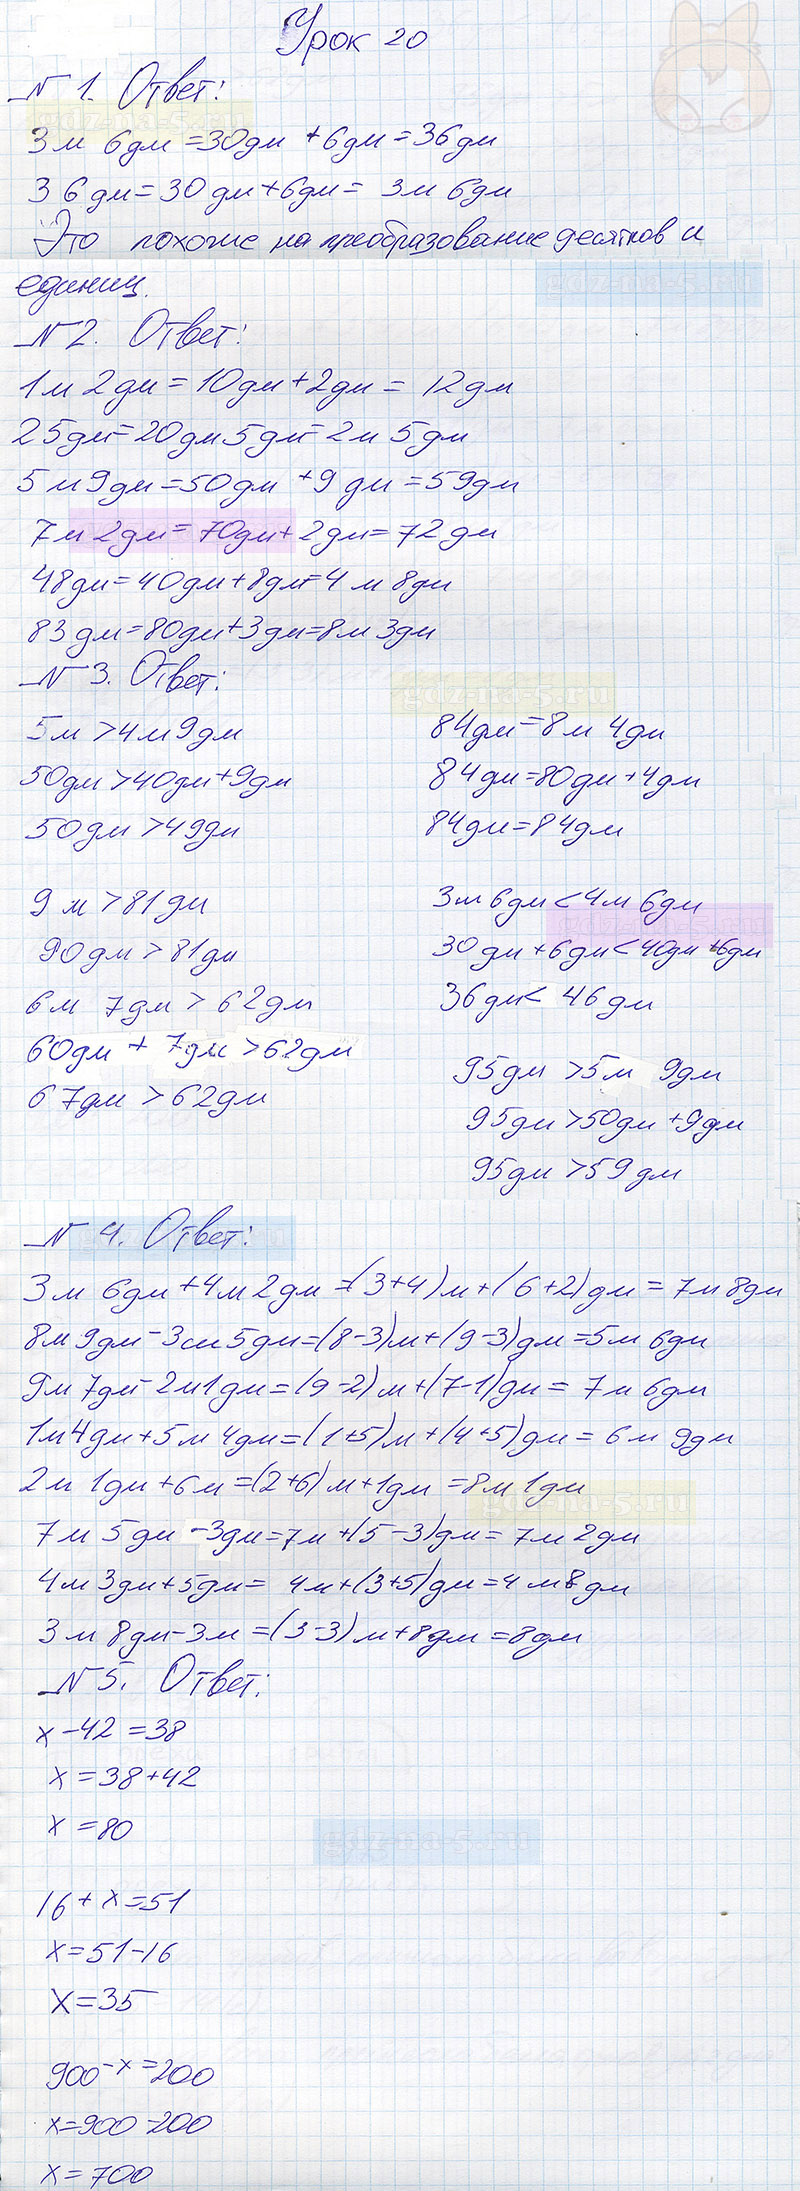 Урок 20
№ 1. Ответ:
gdz-na-5.ru
3м 6дм =30дм +6дм =36дм
36дм=30дм+6дм= 3м 6дм
Это похожие на преобразование десятков и
единиц.
gdz-na-5.ru
№ 2. Ответ:
1м 2дм = 10дм+2дм = 12дм
25дм=20дм 5дм=2м 5дм
5м9дм =50дм +9дм =59дм
7м 2дм= 70дм+ 2дм=72дм
48дм=40дм+8дм=4м 8дм
83дм=80дм+3дм=8м 3дм
№ 3. Ответ:
gdz-na-5.ru
5м >4м9дм
50дм >40дм+9дм
50дм >49дм
84дм=8м 4дм
84дм=80дм+4дм
84дм=84дм
9м >81дм
90дм >81дм
6м 7дм > 62дм
60дм + 7дм >62дм
67дм >62дм
3м 6дм <4м 6дм
gdz-na-5.ru
30дм +6дм<40дм +6дм
36дм< 46дм
95дм >5м 9дм
95дм >50дм +9дм
95дм >59дм
№ 4. Ответ:
3м 6дм +4м 2дм =(3+4)м+(6+2)дм = 7м 8дм
8м 9дм-3см 5дм=(8-3)м+(9-3)дм =5м 6дм
9м 7дм- 2м1дм=(9-2)м+(7-1)дм= 7м 6дм
1м4дм+5м 4дм=(1+5)м+(4+5)дм= 6м 9дм
2м 1дм +6м =(2+6)м+1дм =8м 1дм
gdz-na-5.ru
7м 5дм -3дм=7м+(5-3)дм= 7м 2дм
4м 3дм+5дм= 4м+(3+5)дм=4м8дм
3м 8дм-3м =(3-3)м+8дм =8дм
№ 5. Ответ:
x-42=38
x=38+42
x=80
gdz-na-5.ru
16+x=51
x=51-16
x=35
900-x=200
x=900-200
x=700